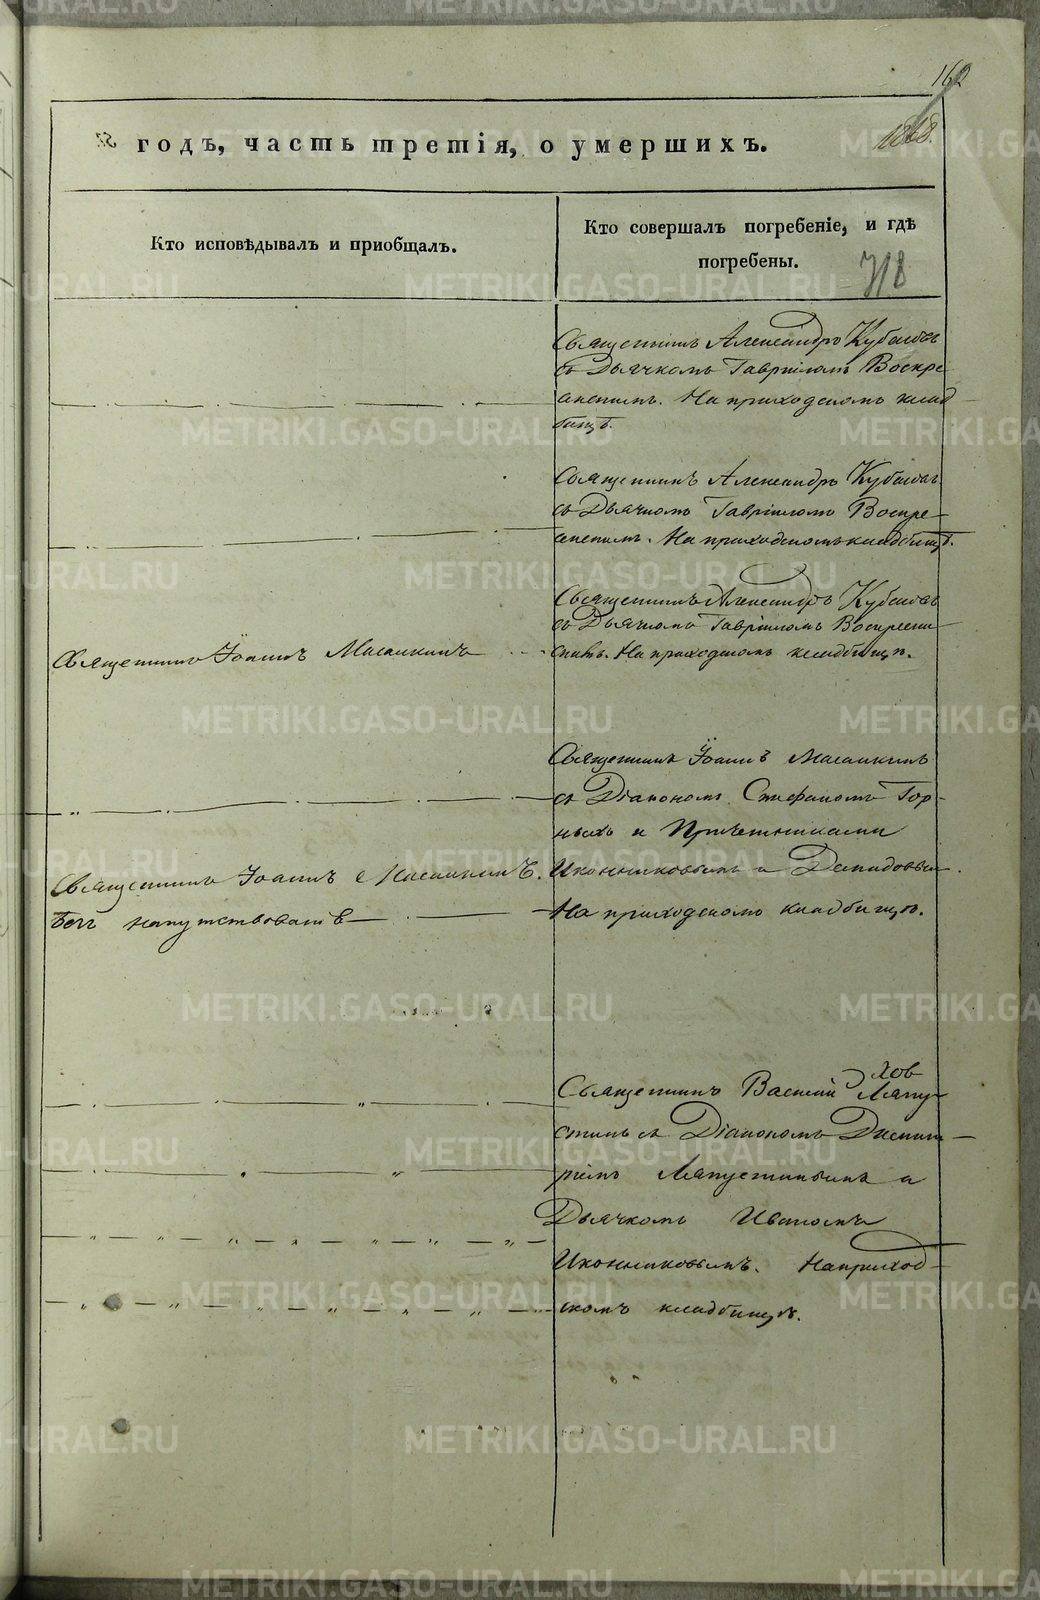 162
1868.
годъ, часть третія, о умершихъ.
Кто исповѣдывалъ и пріобщалъ.
Кто совершалъ погребеніе, и гдѣ
погребены.
718
Священникъ Александръ Кубасовъ
съ Дьячкомъ Гавріиломъ Воскре
сенскимъ. На приходскомъ клад
бищѣ.
Священникъ Александръ Кубасовъ
съ Дьячкомъ Гавріиломъ Воскре-
сенскимъ. На приходскомъ кладбищѣ.
Священникъ Александръ Кубасовъ
съ Дьячкомъ Гавріиломъ Воскресен
скимъ. На приходскомъ кладбищѣ.
Священникъ Іоаннъ
Священникъ Іоаннъ
съ Діакономъ Стефаномъ Гор-
ныхъ и Причетниками
Иконниковымъ и Демидовымъ.
На приходскомъ кладбищѣ.
Священникъ Іоаннъ
безъ напутствованія
Священникъ Василій Ляпу-
стинъ съ Діакономъ Димит-
ріемъ Ляпустинымъ и
Дьячкомъ Иваномъ
Иконниковымъ. На приход-
скомъ кладбищѣ.
METRIKI.GASO-URAL.RU